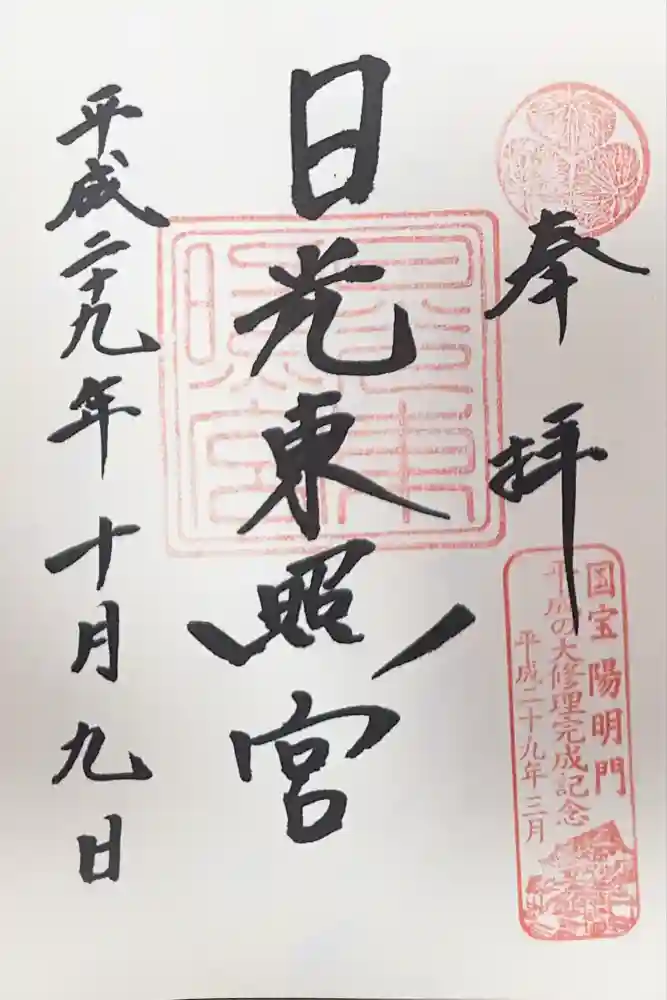 奉拝
国宝 陽明門
平成の大修理完成記念
平成二十九年三月
日光東照宮
東照宮
平成二十九年十月九日